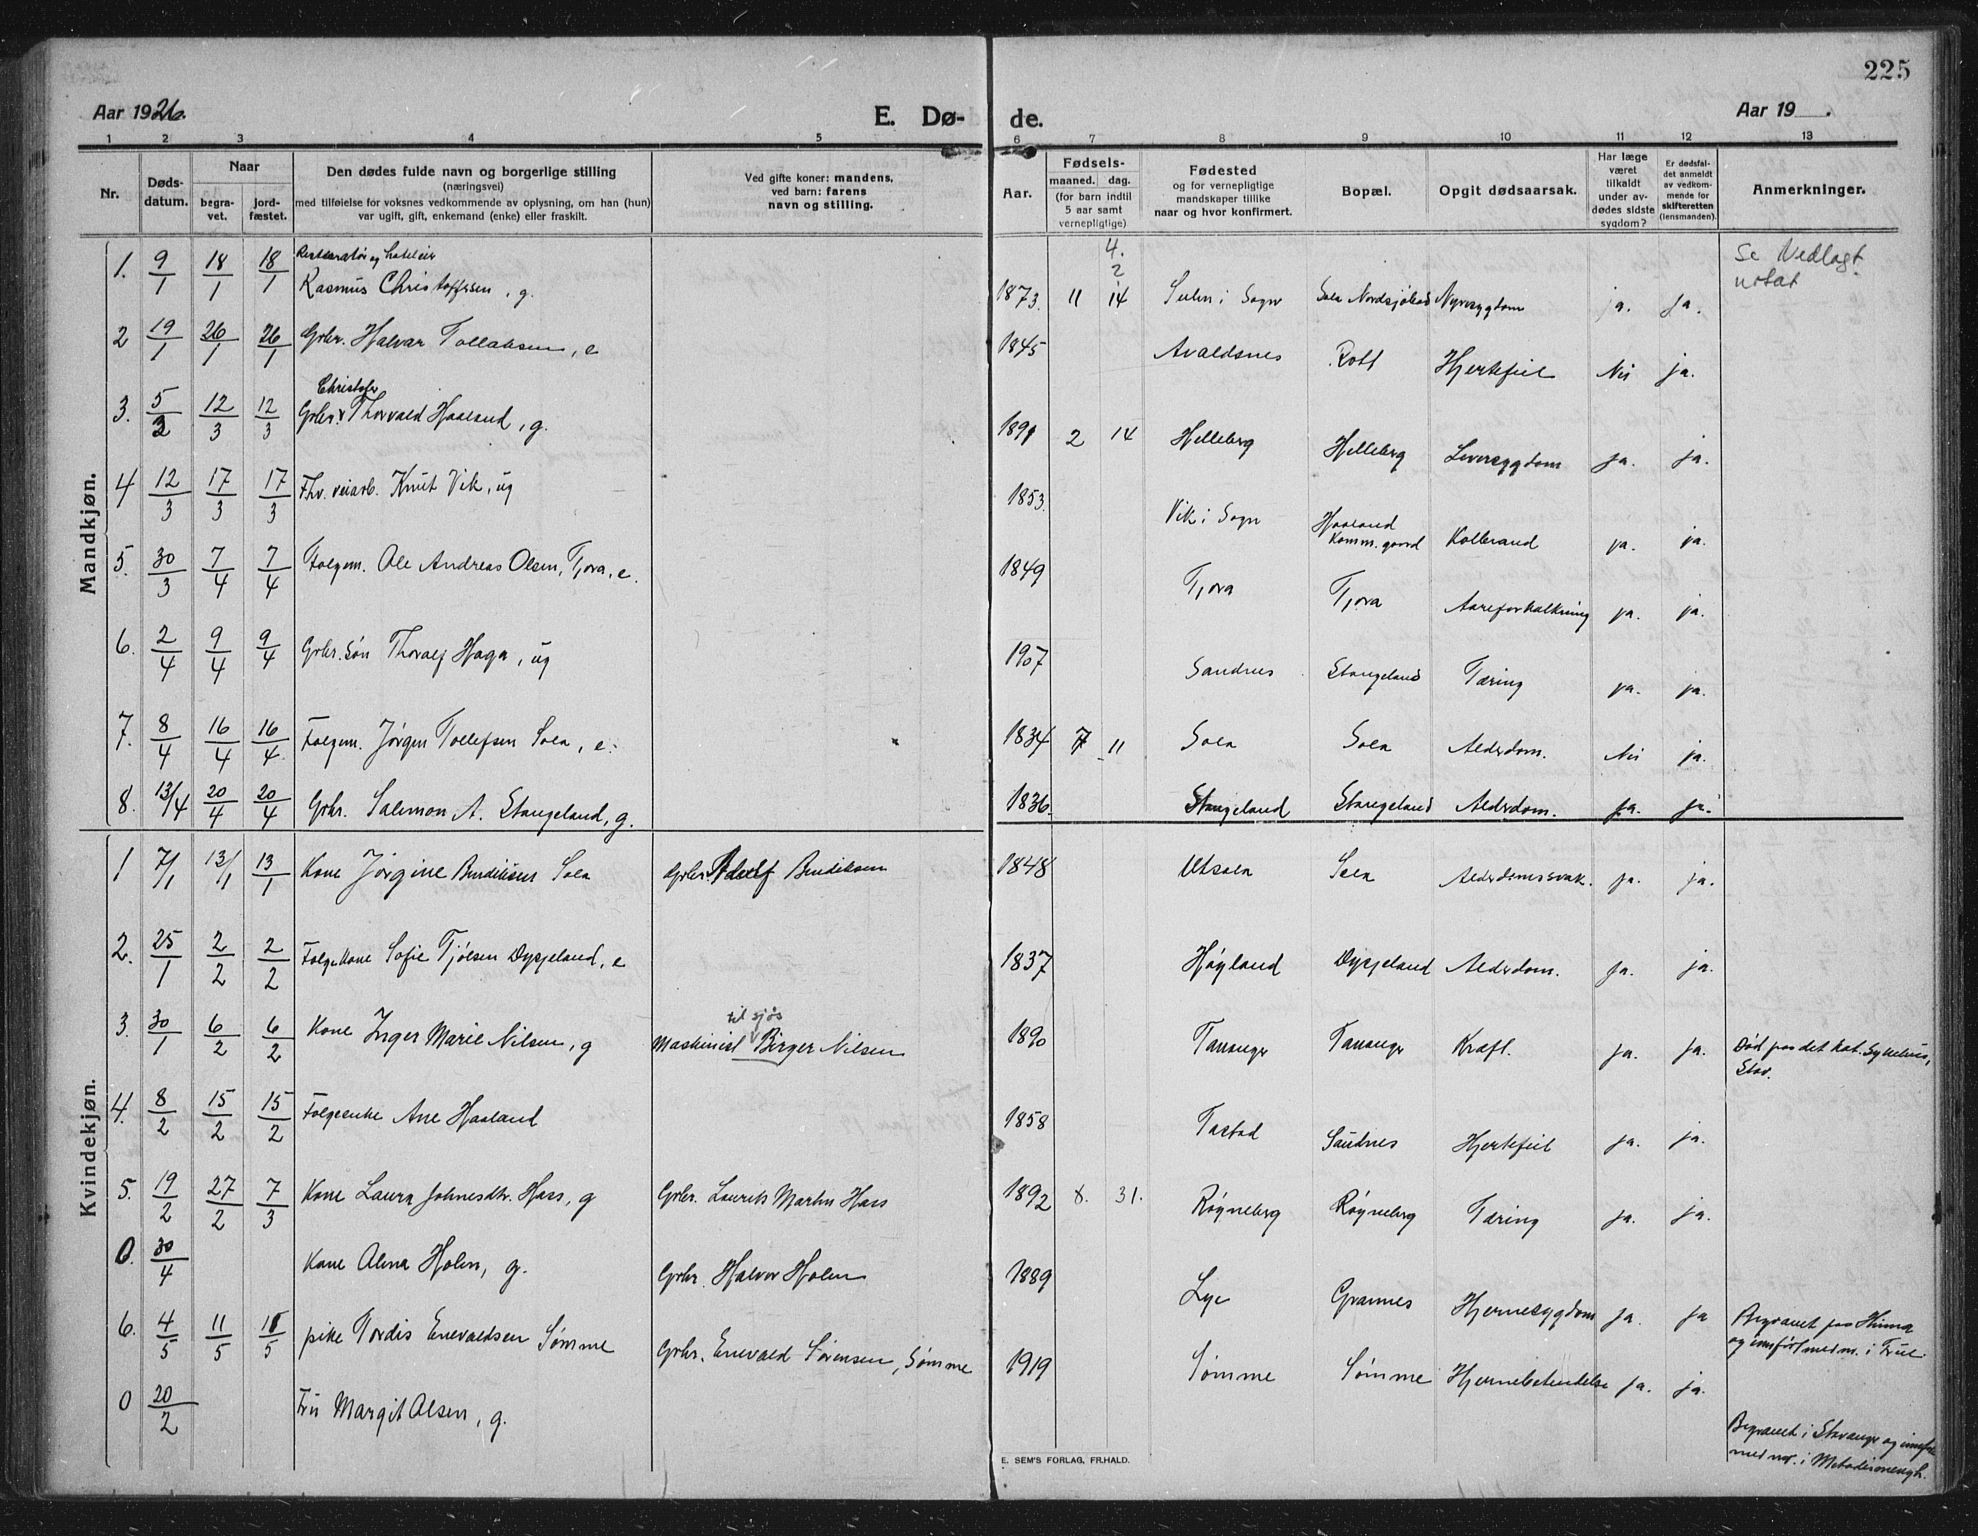 225
Aar 1926.
E. Dø-
de.
Aar 19 .
1 2 3 4 5 6 7 8 9 10 11 12 13
Nr.
Døds-
datum.
Naar
begra-
vet.
jord-
fæstet.
Den dødes fulde navn og borgerlige stilling
(næringsvei)
med tilføielse for voksnes vedkommende av oplysning, om han (hun)
var ugift, gift, enkemand (enke) eller fraskilt.
Ved gifte koner: mandens,
ved barn: farens
navn og stilling.
Aar.
Fødsels-
maaned. dag.
(for barn indtil
5 aar samt
vernepligtige)
Fødested
og for vernepligtige
mandskaper tillike
naar og hvor konfirmert.
Bopæl.
Opgit dødsaarsak.
Har læge
været
tilkaldt
under av-
dødes sidste
sygdom?
Er dødsfal-
det anmeldt
av vedkom-
mende for
skifteretten
(lensmanden).
Anmerkninger.
Mandkjøn.
Restauratør og hoteleier
4.
2
Se Vedlagt
notat
1. 9/1 18/1 18/1 Rasmus Christoffersen, g. 1873. 11 14 Sulen i Sogn Sola Nordsjøbad Nyresygdom ja. ja.
2 19/1 26/1 26/1 Grbr. Halvar Tollaksen, e 1845 Avaldsnes Rott Hjertefeil Nei ja.
Christofer
3. 5/3 12/3 12/3 Grbr. Thorvald Haaland, g. 1891 2 14 Helleberg Helleberg Leversygdom ja. ja.
4 12/3 17/3 17/3 Fhv. veiarb. Knut Vik, ug 1853. Vik i Sogn Haaland
Komm. gaard Koldbrand ja. ja.
5. 30/3 7/4 7/4 Folgem. Ole Andreas Olsen, Tjora, e. 1849 Tjora Tjora Aareforkalkning ja. ja.
6. 2/4 9/4 9/4 Grbr. søn Thoralf Haga, ug 1907 Sandnes Stangeland Tæring ja. ja.
7. 8/4 16/4 16/4 Folgem. Jørgen Tollefsen Sola, e. 1834 7 11 Sola Sola Alderdom. Nei ja.
8. 13/4 20/4 20/4 Grbr. Salemon A. Stangeland, g. 1836. Stangeland Stangeland Alderdom. ja. ja.
Kvindekjøn.
1 7/1 13/1 13/1 Kone Jørgine Bendiksen Sola Grbr. Adolf Bendiksen 1848 Utsola Sola Alderdomssvak. ja. ja.
2. 25/1 2/2 2/2 Folgekone Sofie Tjølsen Dysjeland, e 1837 Høyland Dysjeland Alderdom. ja. ja.
til sjøs
3. 30/1 6/2 6/2 Kone Inger Marie Nilsen, g Maskinist Birger Nilsen 1890 Tananger Tananger Kræft. ja. ja. Død paa det kat. Sykehus,
Stav.
4. 8/2 15/2 15/2 Folgeenke Ane Haaland 1858 Tastad Sandnes Hjertefeil ja. ja.
5. 19/2 27/2 7/3 Kone Laura Johnesdtr. Hass, g Grbr. Laurits Martin Hass 1892 8. 31. Røyneberg Røyneberg Tæring ja. ja.
0. 30/4 Kone Alma Holen, g. Grbr. Halvor Holen 1889 Lye Grannes Hjernesygdom ja. ja Begravet paa Hinna
og innført med nr. i
6. 4/5 11/5 11/5 pike Tordis Enevaldsen Sømme Grbr. Enevald Sørensen, Sømme 1919 Sømme Sømme Hjernebetændelse ja. ja.
0 20/2 Fru Margit Olsen, g. Begravet i Stavanger og innført
med nr. i Metodistmenigh.
E. SEM'S FORLAG, FR.HALD.